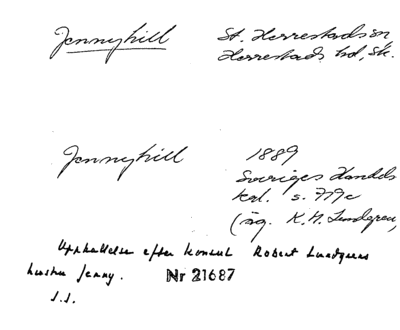 Jennyhill St. Herrestads sn,
Herrestads hd, Sk.
Jennyhill 1889
Sveriges Handels
kal. s. 779c
(äg. K. N. Lundgren,
Uppkallelse efter konsul Robert Lundgrens
hustru Jenny. Nr 21687
J.S.